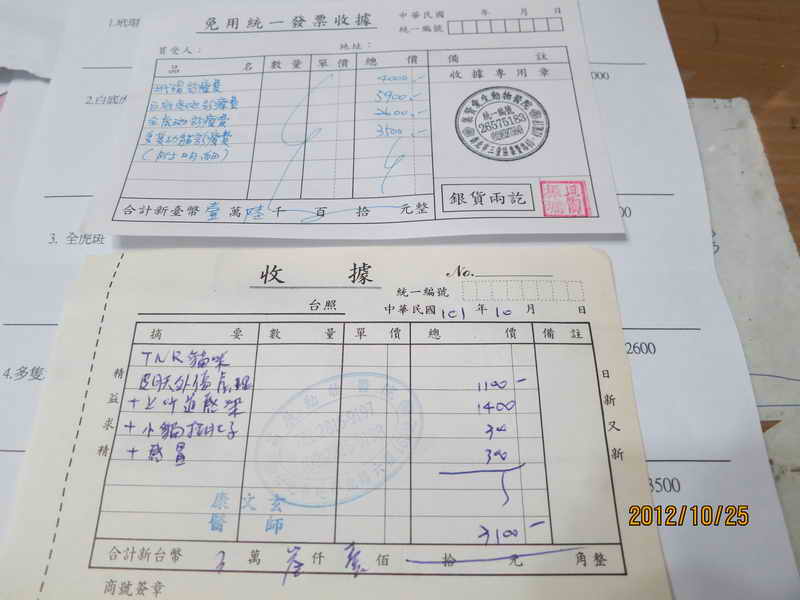 1.玳瑁
免用統一發票收據
中華民國 年 月 日
統一編號
買受人：
地址：
品 名 數量 單價 總價 備註
收據專用章
玳瑁醫療費 4000.-
白底虎斑醫療費 5900.-
全虎斑醫療費 2600.-
3500.-
統一編號
26575183
銀貨兩訖
合計新臺幣壹萬陸千 百 拾 元整
2.白底
3. 全虎斑
4.多隻
000
00
2600
3500
收 據
No.
統一編號
台照
中華民國 101 年 10 月 日
摘 要 數 量 單 價 總 價 備 註
精益求精
日新又新
TNR 貓咪
皮膚外傷處理 1100-
+上呼吸道感染 1400
+小貓 300
300
康文玄
醫師
3100-
合計新台幣 萬 仟 佰 拾 元 角整
商號簽章
2012/10/25